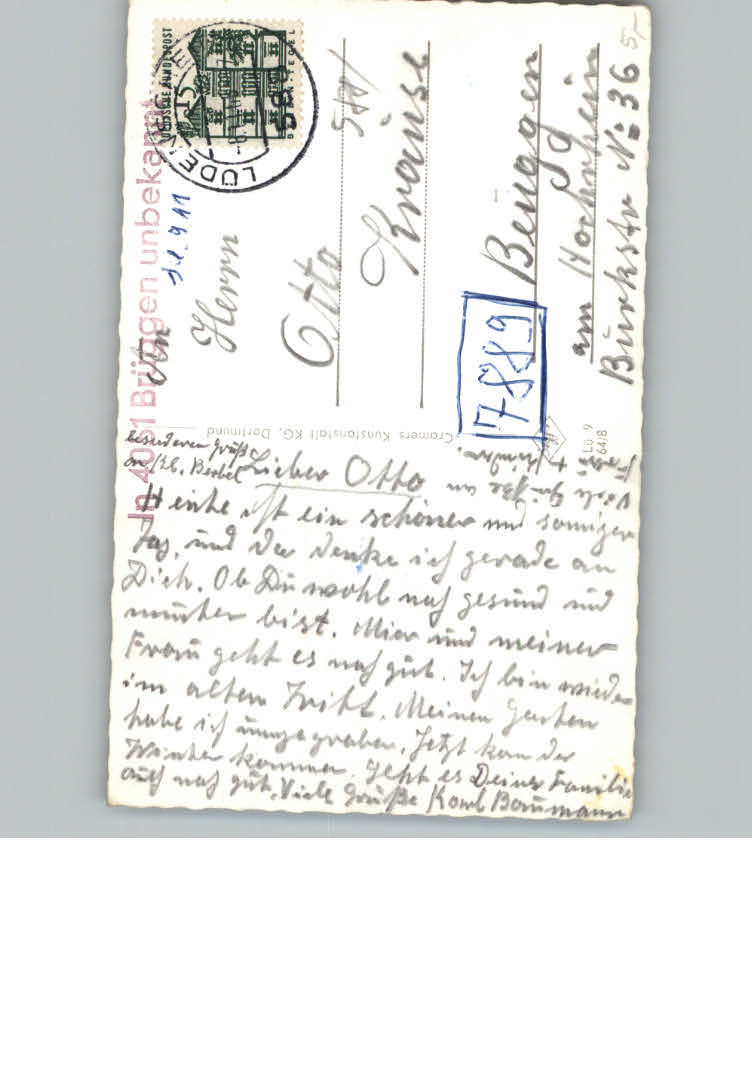 DEUTSCHE BUNDESPOST
TEGEL
15
LÜDENSCHEID
588
In 4051 Brüggen unbekannt
An
Herrn
Otto
Krause
Beuggen
am Hochrhein
Burkstr № 36
5,-
7889
Cramers Kunstanstalt KG, Dortmund
Lü 9
64/8
besonderen Grüße
an Kl. Berbel
Lieber Otto
Viele Grüße an
Frau + Kinder.
Heute ist ein schöner und sonniger
Tag, und da denke ich gerade an
Dich. Ob Du wohl noch gesund und
munter bist. Mier und meiner
Frau geht es noch gut. Ich bin wieder
im alten Tritt. Meinen Garten
habe ich umgegraben. Jetzt kan der
Winter kommen. Geht es Deiner Familie
auch noch gut. Viele Grüße Karl Baumann